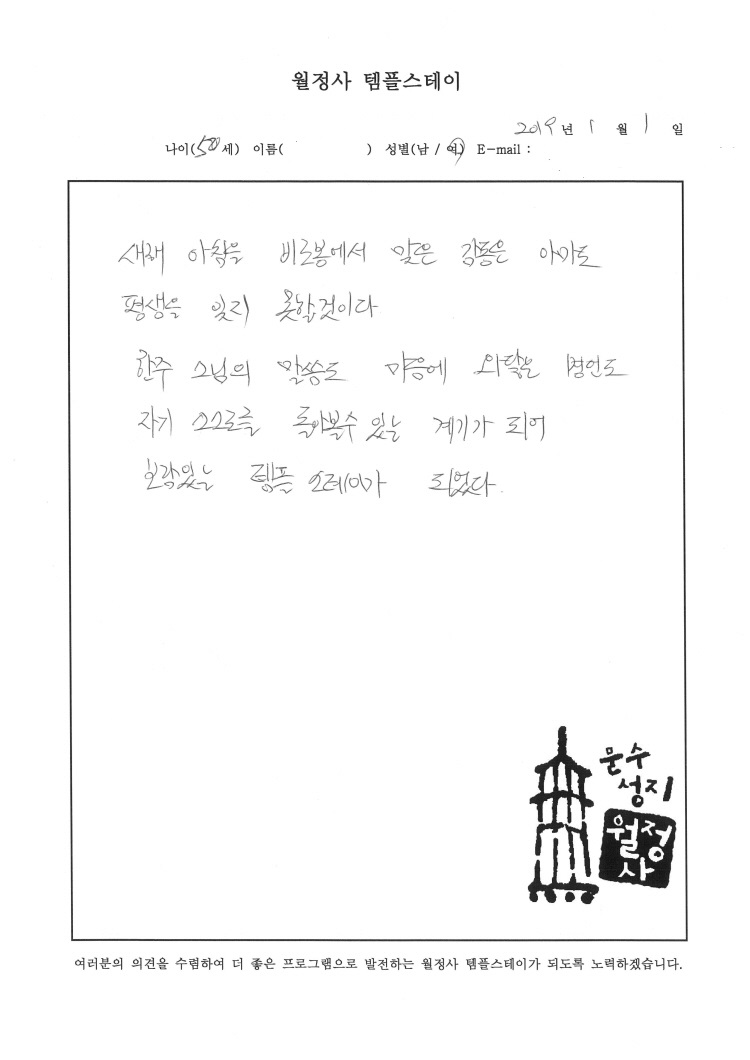 월정사 템플스테이
2019 년 1 월 1 일
나이(50 세) 이름( ) 성별(남 / 여) E-mail :
새해 아침을 비로봉에서 맞은 감동은 아마도
평생을 잊지 못할것이다
한주 스님의 말씀도 마음에 와닿는 명언도
자기 스스로를 돌아볼수 있는 계기가 되어
보람있는 템플 스테이가 되었다.
문수
성지
월정
사
여러분의 의견을 수렴하여 더 좋은 프로그램으로 발전하는 월정사 템플스테이가 되도록 노력하겠습니다.